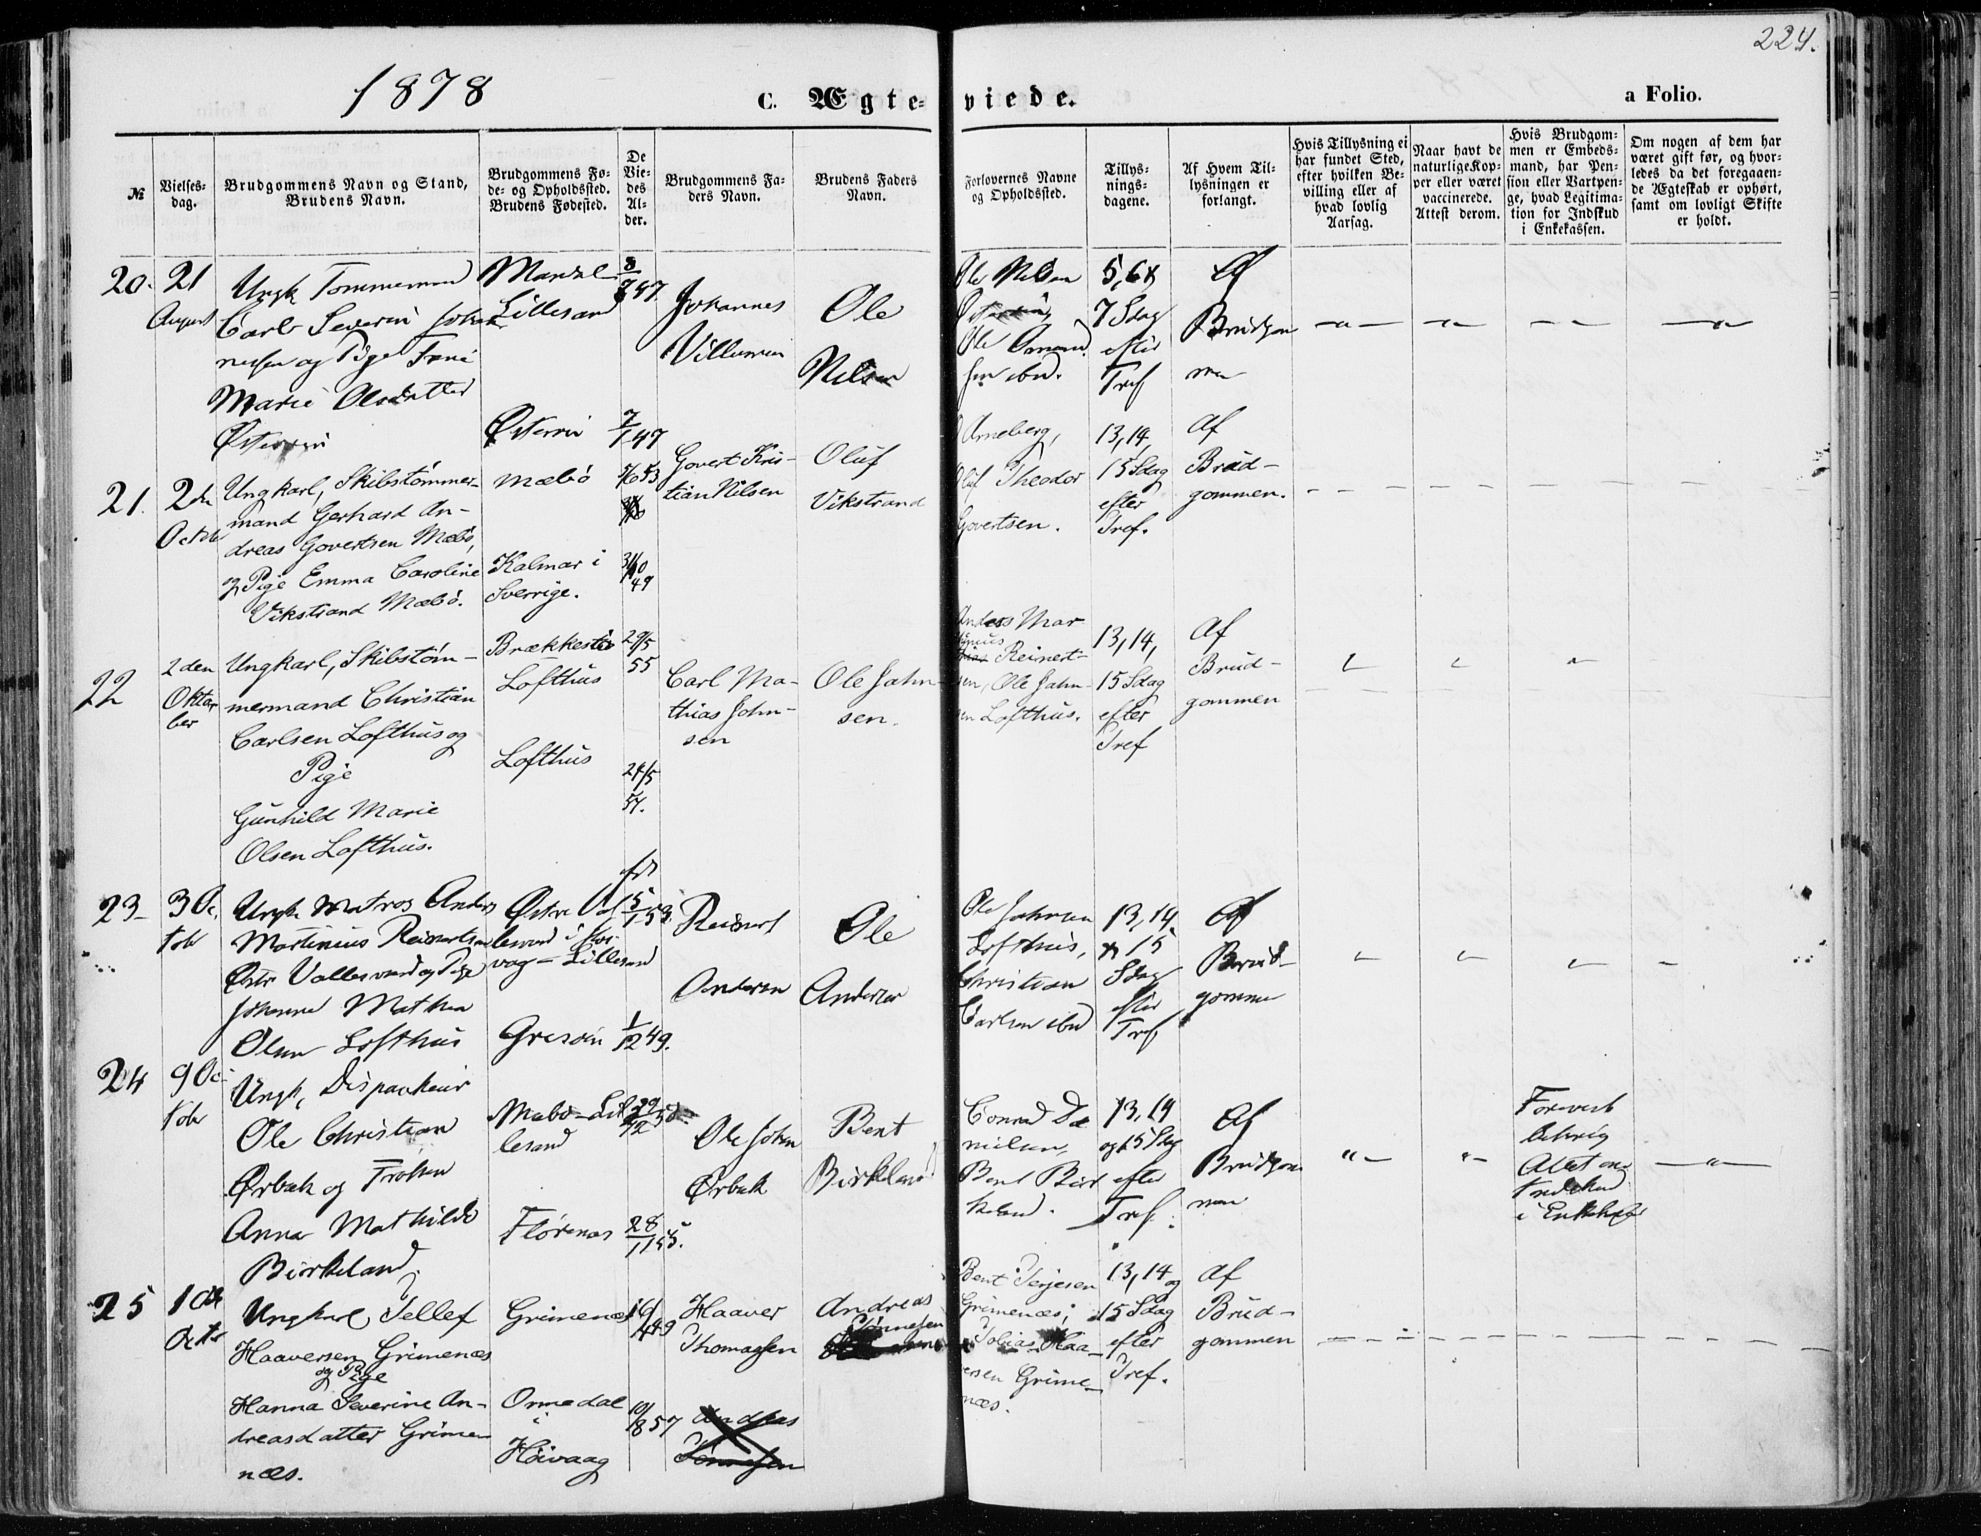 224.
1878
C. Ægte-
viede.
a Folio.
№
Vielses-
dag.
Brudgommens Navn og Stand,
Brudens Navn.
Brudgommens Fø-
de- og Opholdssted.
Brudens Fødested.
De
Vie-
des
Al-
der.
Brudgommens Fa-
ders Navn.
Brudens Faders
Navn.
Forlovernes Navne
og Opholdssted.
Tillys-
nings-
dagene.
Af Hvem Til-
lysningen er
forlangt.
Hvis Tillysning ei
har fundet Sted,
efter hvilken Be-
villing eller af
hvad lovlig
Aarsag.
Naar havt de
naturlige Kop-
per eller været
vaccinerede.
Attest derom.
Hvis Brudgom-
men er Embeds-
mand, har Pen-
sion eller Vartpen-
ge, hvad Legitima-
tion for Indskud
i Enkekassen.
Om nogen af dem har
været gift før, og hvor-
ledes da det foregaaen-
de Ægteskab er ophørt,
samt om lovligt Skifte
er holdt.
20.
21
August
Ungk Tømmermand
Carl Severin
nessen og Pige
Marie Olsdatter
Mandal
Lillesand
7/1 47
Johannes
Villumsen
Ole
Nilsen
Ole Nilsen
Ole
sen ibd.
5, 6 &
7 Sdag
efter
Tref
Af
Brudgom
men
21.
2den
Octob
Ungkarl, Skibstømmer-
mand Gerhard An-
dreas Govertsen Mæbø,
og Pige Emma Caroline
Vikstrand Mæbø.
Mæbø
Kalmar i
Sverrige.
5/6 53
31/10
49
Govert Kris-
tian Nilsen
Oluf
Vikstrand
Arneberg,
Oluf Theodor
Govertsen.
13, 14,
15 Sdag
efter
Tref.
Af
Brud-
gommen.
22
2den
Okto-
ber
Ungkarl, Skibstøm-
mermand Christian
Carlsen Lofthus og
Pige
Gunhild Marie
Olsen Lofthus.
Brækkestø
Lofthus
Lofthus
29/5
55
24/5
54.
Carl Ma-
thias John-
sen
Ole Jahn-
sen.
Anders Mar
tinius
Reinert-
sen, Ole Jahn-
sen Lofthus.
13, 14,
15 Sdag
efter
Tref
Af
Brud-
gommen
23-
3 Oc.
tob
Ungk Matros Anders
Martinius Reinertsen
Østre Vallesværd og Pige
Johanne Mathea
Olsen Lofthus
Østre Val
lesværd i Høi-
vag - Lillesand
15/1 53.
1/12 49.
Reinert
Andersen
Ole
Andersen
Ole Jahnsen
Lofthus,
Christian
Carlsen ibd
13, 14,
& 15
Sdag
efter
Tref
Af
Brud-
gommen
24
9 Oc.
tob
Ungk, Dispacheur
Ole Christian
Ørbæk og Frøken
Anna Mathilde
Birkeland.
Mæbø - Lil
lesand
Florenæs
28/11 55.
Ole John
Ørbæk
Bent
Birkeland
Conrad Da
nielsen,
Bent Bir
keland.
13, 14
og 15 Sdag
efter
Tref.
Af
Brudgom
men
Forevist
Attest om
Indskud
i Enkekasse
25
10de
Octbr
Ungkarl Tellef
Haaversen Grimenæs
og Pige
Hanna Severine An-
dreasdatter Grime-
næs.
Grimenæs
Omredal
i
Høivaag
10/8 57
Haaver
Thomassen
Andreas
Tønnesen
Andreas
Tønnesen
Bent Terjesen
Grimenæs;
Tobias Haa-
versen Grime-
næs.
13, 14 og
15 Sdag
efter
Tref.
Af
Brud-
gommen